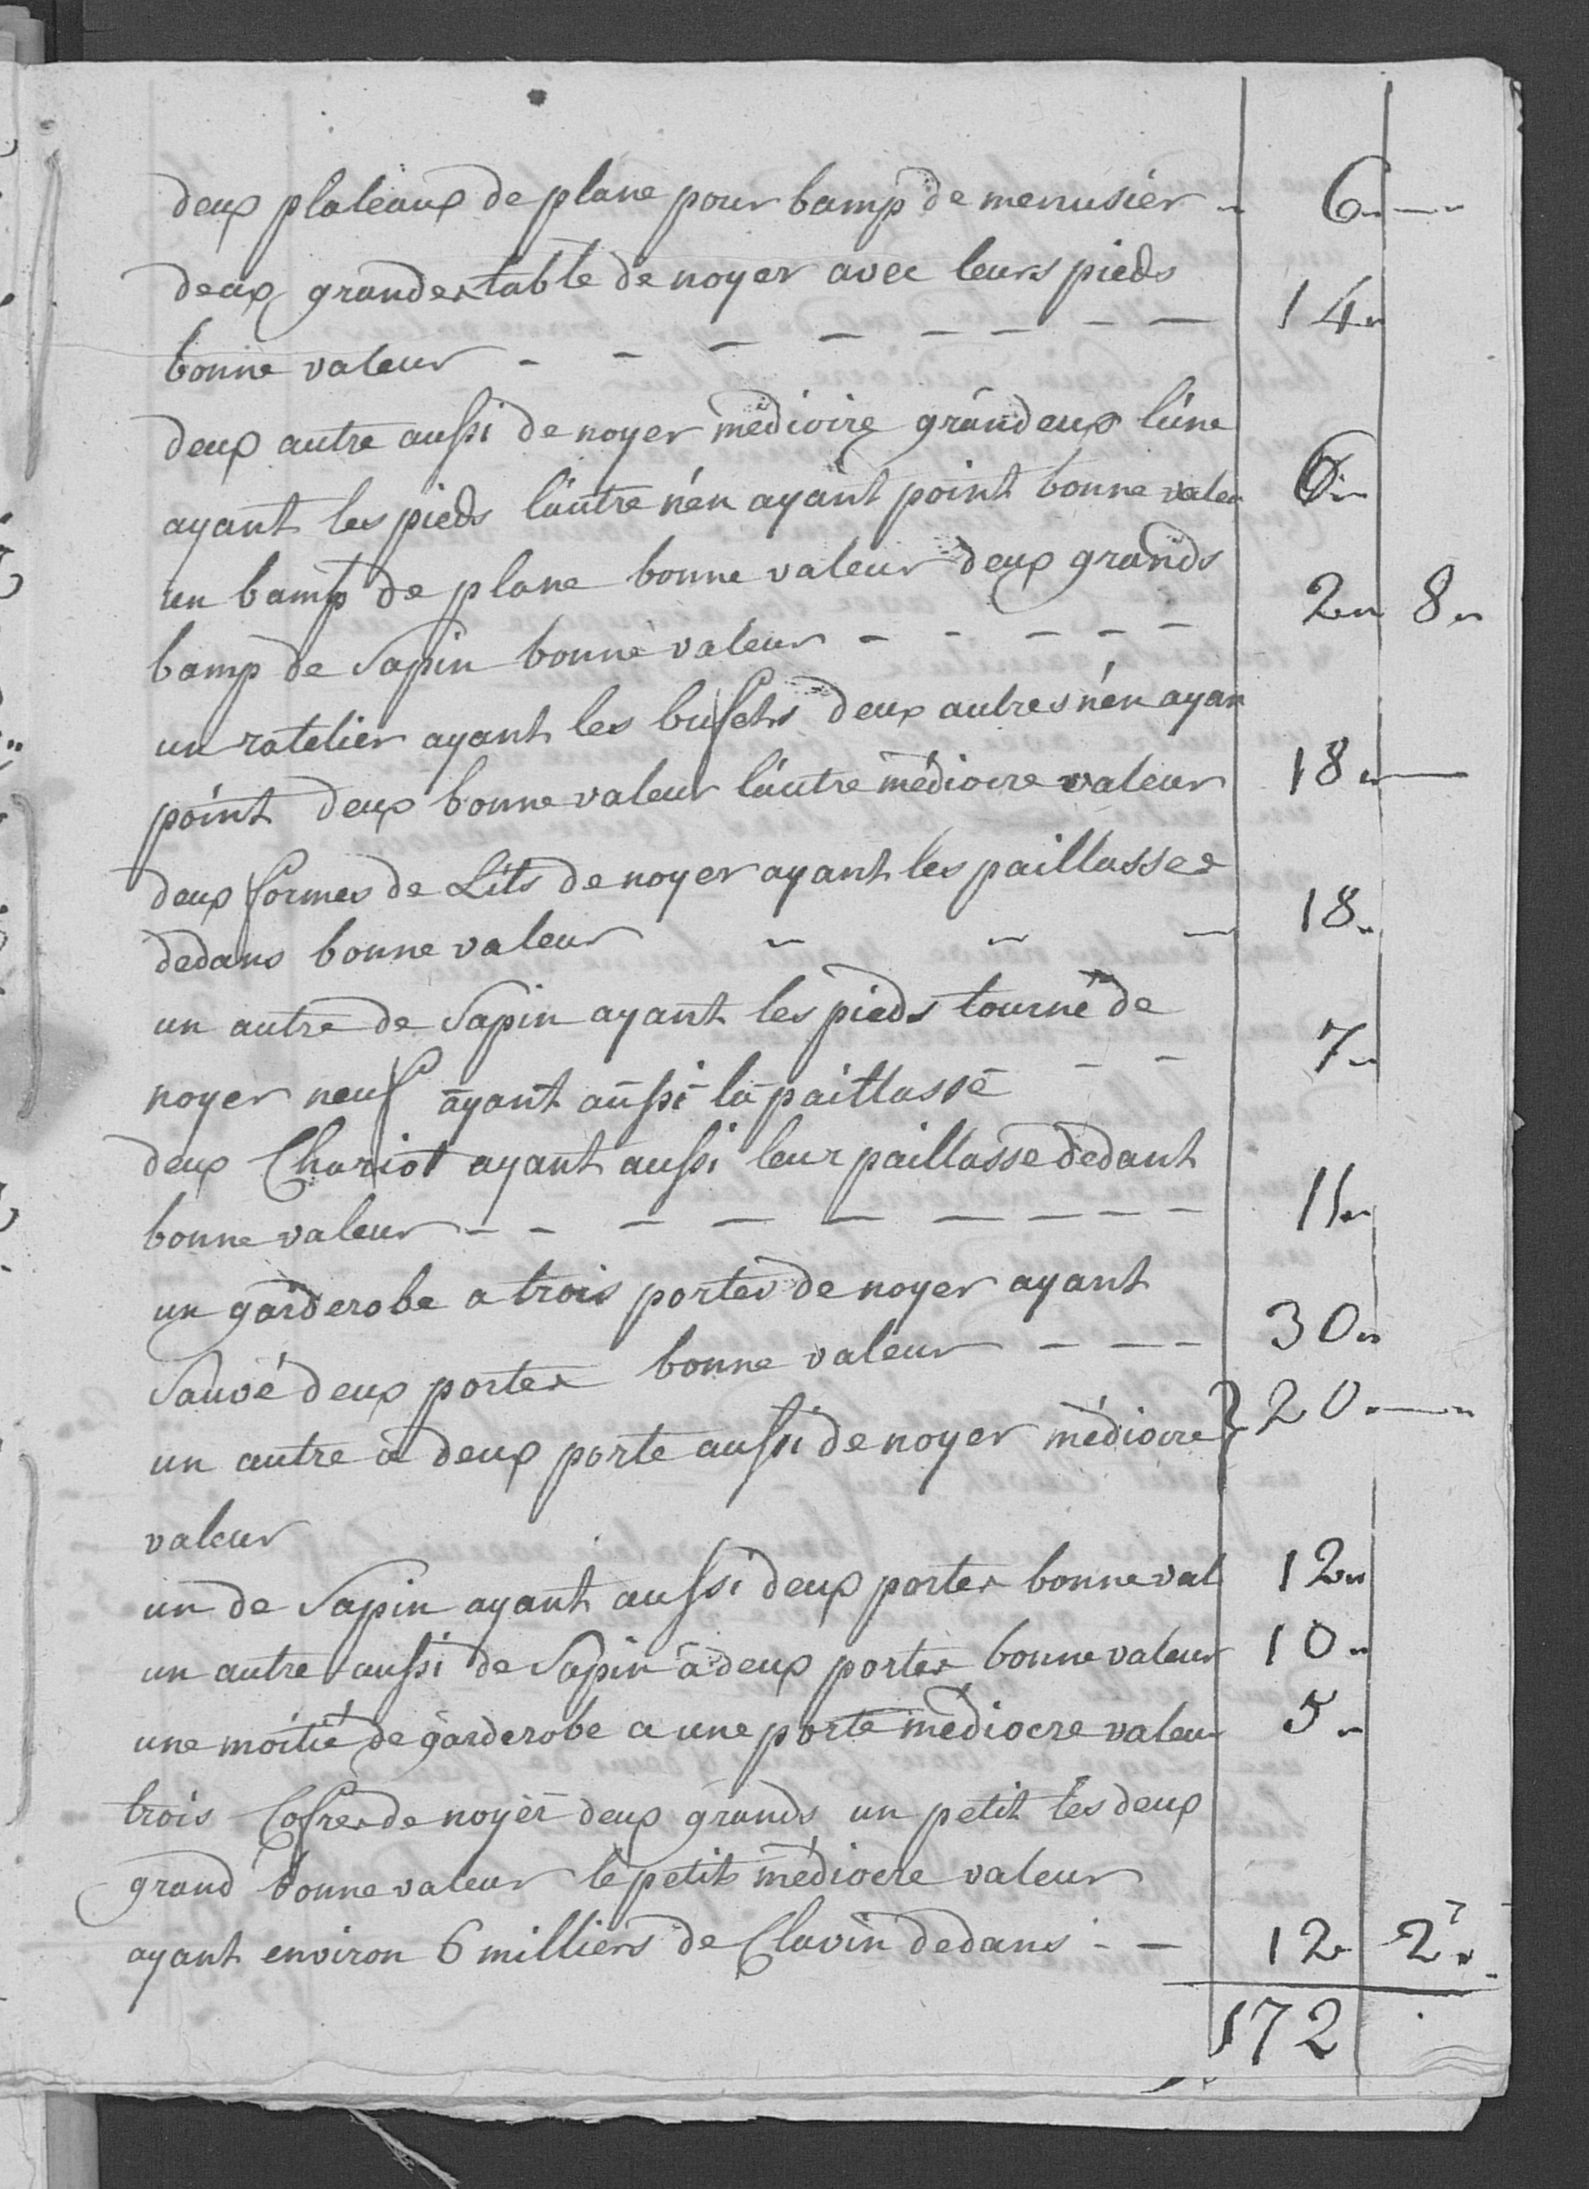 deux plateaux de plane pour bamp de menusier 6
deux grandes table de noyer avec leurs pieds
bonne valeur - - - - - - - - 14
deux autre aussi de noyer médioire grandeux l'une
ayant les pieds l'autre n'en ayant point bonne valeu 6
un bamp de plane bonne valeur deux grands
bamp de Sapin bonne valeur - - - - - 2 8
un ratelier ayant les bufets deux autres n'en ayan
point deux bonne valeur l'autre médiocre valeur 18
deux formes de Lits de noyer ayant les paillasses
dedans bonne valeur - - - 18
un autre de Sapin ayant les pieds tourné de
noyer neuf ayant aussi la paillasse - - 7
deux Chariot ayant aussi leur paillasse dedant
bonne valeur - - - - - - - - - 11
un garderobe a trois portes de noyer ayant
Sauvé deux portes bonne valeur - - - 30
un autre a deux porte aussi de noyer médiocre } 20
valeur
un de Sapin ayant aussi deux portes bonne val 12
un autre aussi de Sapin à deux portes bonne valeur 10
une moitié de garderobe a une porte médiocre valeur 5
trois Cofres de noyer deux grands un petit les deux
grand bonne valeur le petit médiocre valeur
ayant environ 6 milliers de Clavin dedans - - 12 2
172